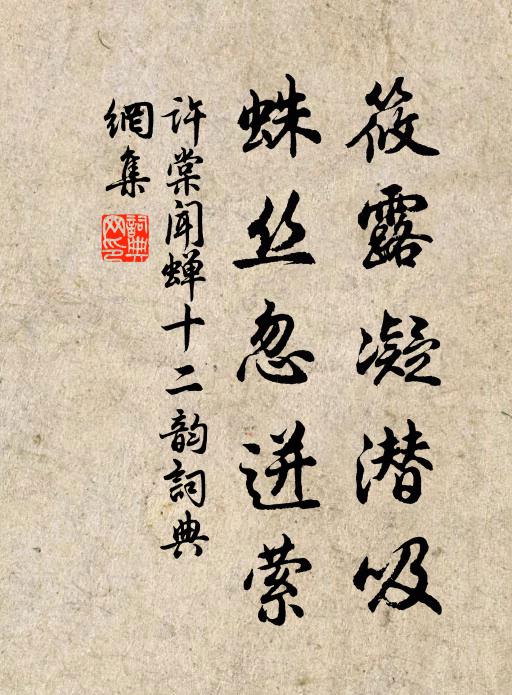 筱露凝潜吸
蛛丝忽迸萦
许棠闻蝉十二韵詞典
網集
詞典
网印